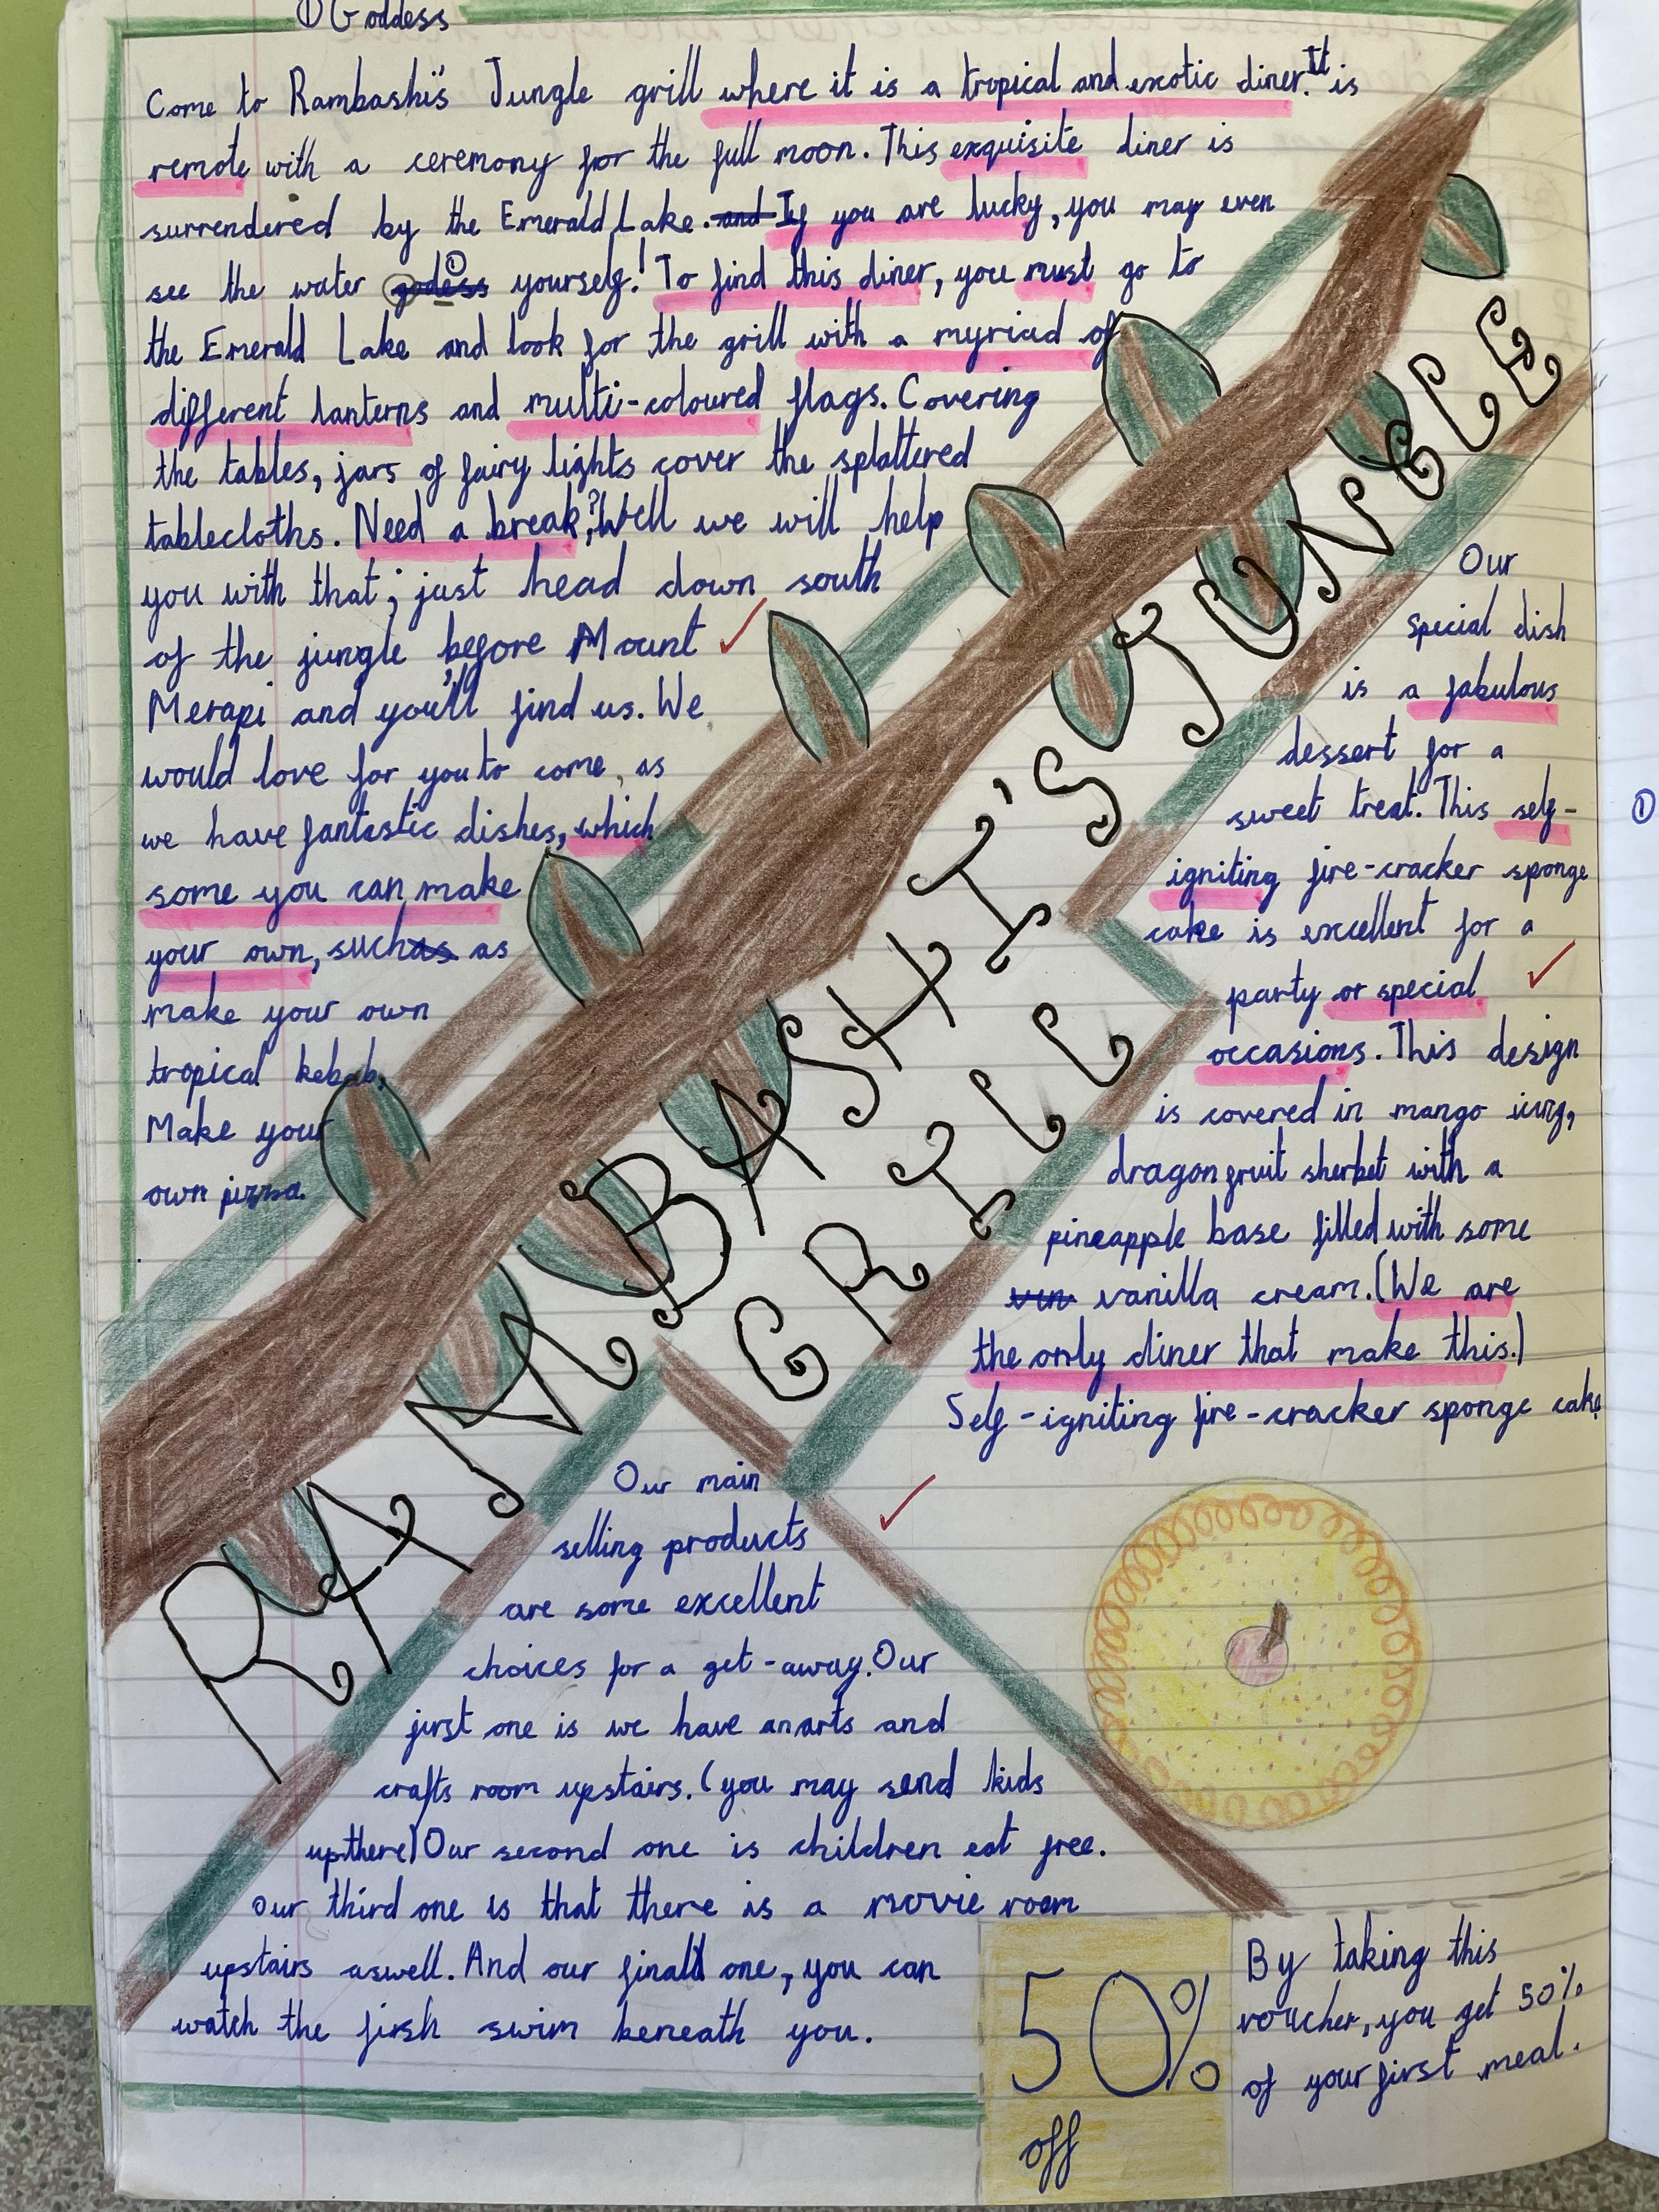 ① Goddess
Come to Rambashi's Jungle grill where it is a tropical and exotic diner. It is
remote with a ceremony for the full moon. This exquisite diner is
surrendered by the Emerald Lake. and If you are lucky, you may even
see the water godess ① yourself! To find this diner, you must go to
the Emerald Lake and look for the grill with a myriad of
different lanterns and multi-coloured flags. Covering
the tables, jars of fairy lights cover the splattered
tablecloths. Need a break? Well we will help
you with that; just head down south
of the jungle before Mount
Merapi and you'll find us. We
would love for you to come, as
we have fantastic dishes, which
some you can make
your own, such as as
make your own
tropical kebab,
Make your
own pizza.
RAMBASHI'S JUNGLE
GRILL
Our
special dish
is a fabulous
dessert for a
sweet treat. This self-
igniting fire-cracker sponge
cake is excellent for a
party or special
occasions. This design
is covered in mango icing,
dragonfruit sherbet with a
pineapple base filled with some
vanilla cream. (We are
the only diner that make this.)
Self-igniting fire-cracker sponge cake
①
Our main
selling products
are some excellent
choices for a get-away. Our
first one is we have an arts and
crafts room upstairs. (you may send kids
up there) Our second one is children eat free.
Our third one is that there is a movie room
upstairs aswell. And our final one, you can
watch the fish swim beneath you.
50%
off
By taking this
voucher, you get 50%
of your first meal.